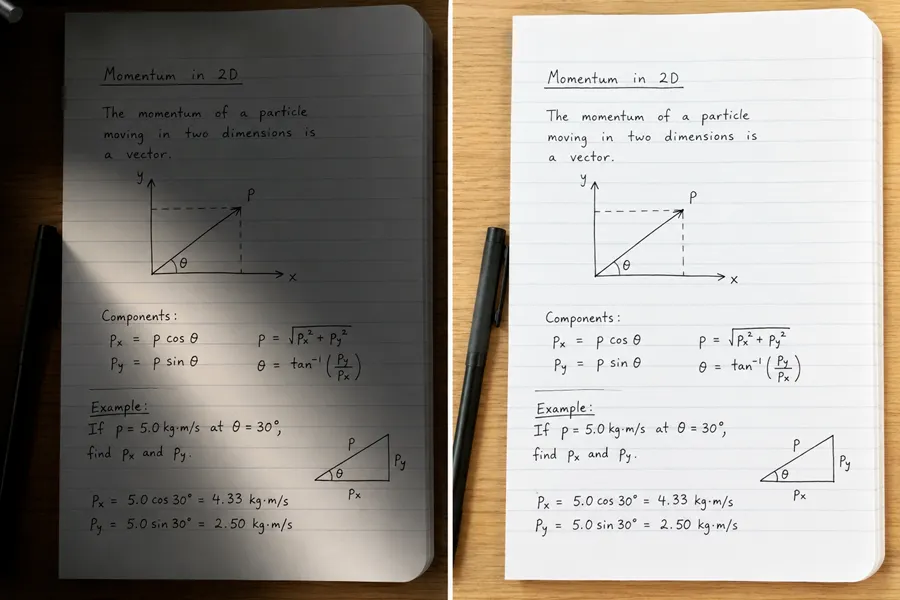 Momentum in 2D
The momentum of a particle
moving in two dimensions is
a vector.
y
p
θ
x
Components:
pₓ = p cos θ
p = √(pₓ² + p_y²)
p_y = p sin θ
θ = tan⁻¹ (p_y/pₓ)
Example:
If p = 5.0 kg·m/s at θ = 30°,
find pₓ and p_y.
p
p_y
θ
pₓ
pₓ = 5.0 cos 30° = 4.33 kg·m/s
p_y = 5.0 sin 30° = 2.50 kg·m/s
Momentum in 2D
The momentum of a particle
moving in two dimensions is
a vector.
y
p
θ
x
Components:
pₓ = p cos θ
p = √(pₓ² + p_y²)
p_y = p sin θ
θ = tan⁻¹ (p_y/pₓ)
Example:
If p = 5.0 kg·m/s at θ = 30°,
find pₓ and p_y.
p
p_y
θ
pₓ
pₓ = 5.0 cos 30° = 4.33 kg·m/s
p_y = 5.0 sin 30° = 2.50 kg·m/s